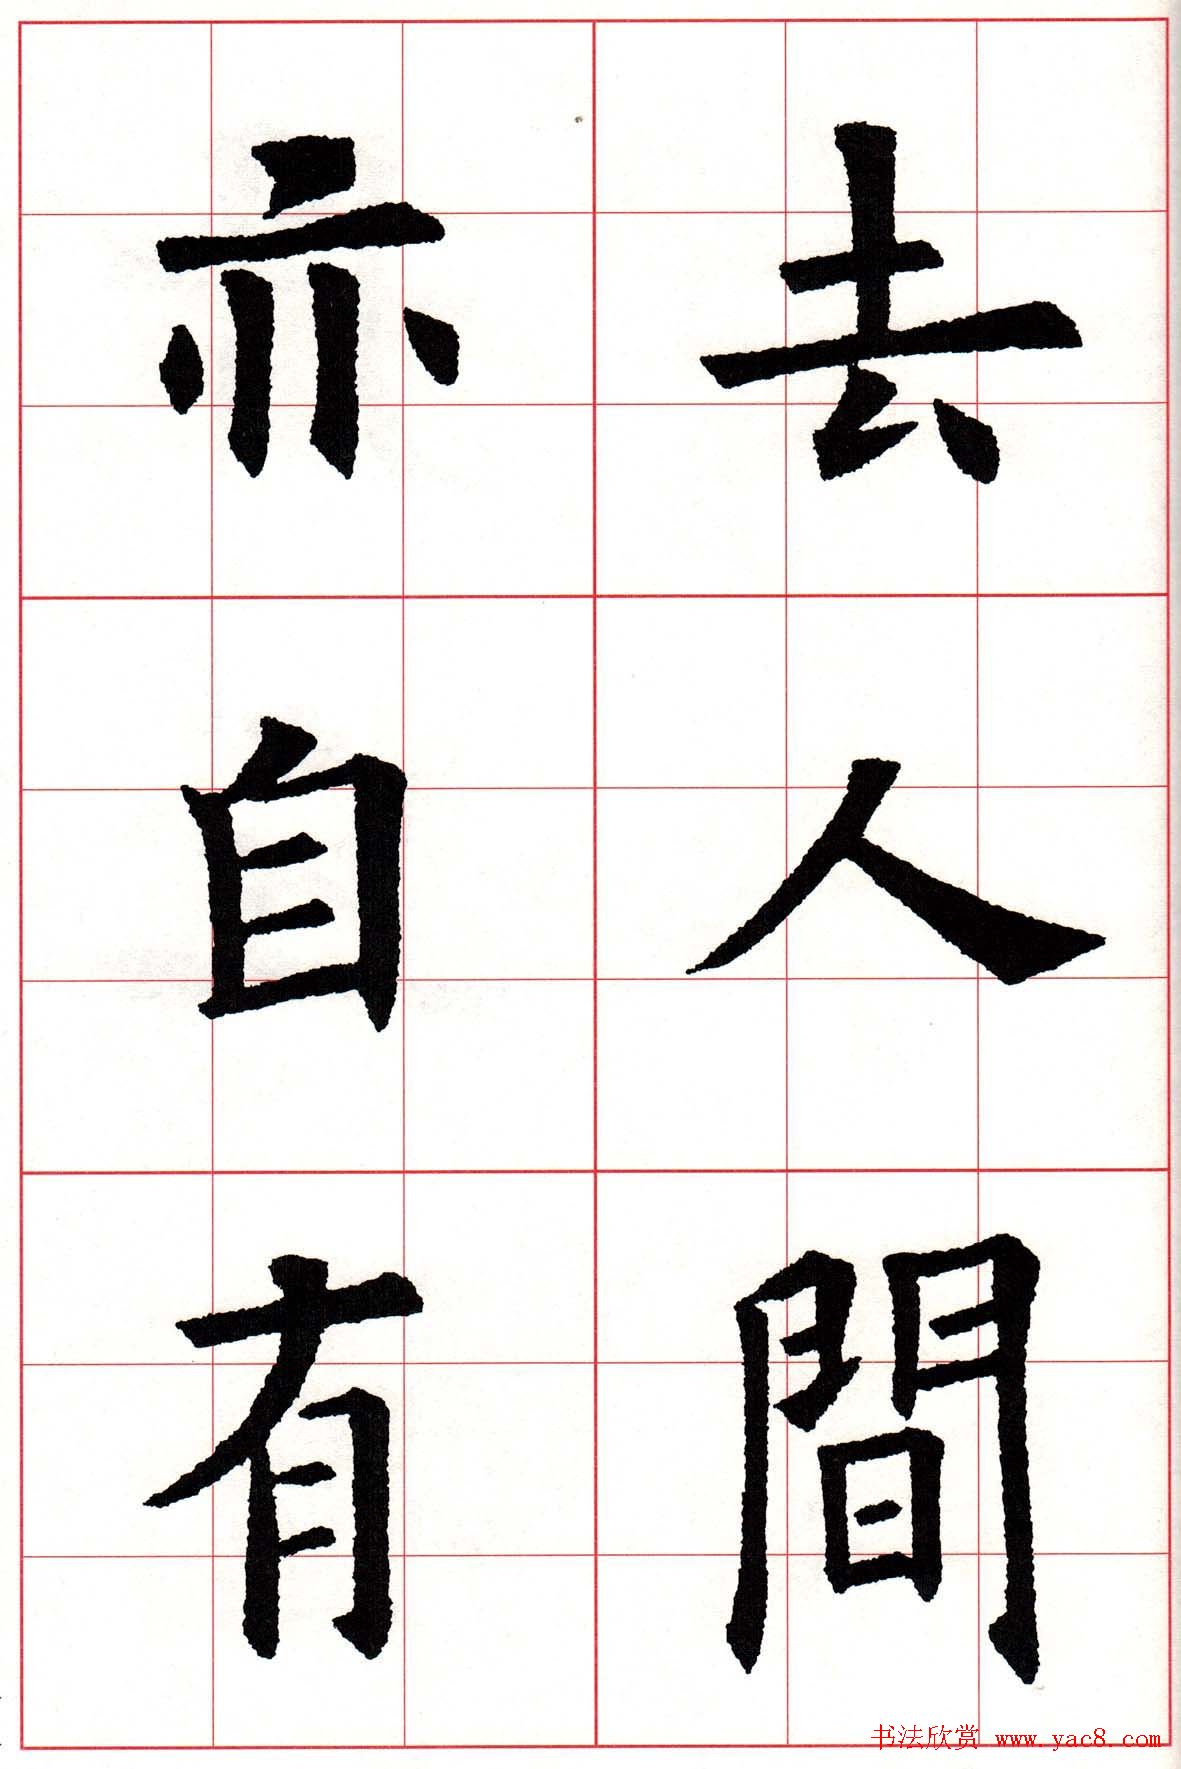 去人間
亦自有
书法欣赏 www.yac8.com